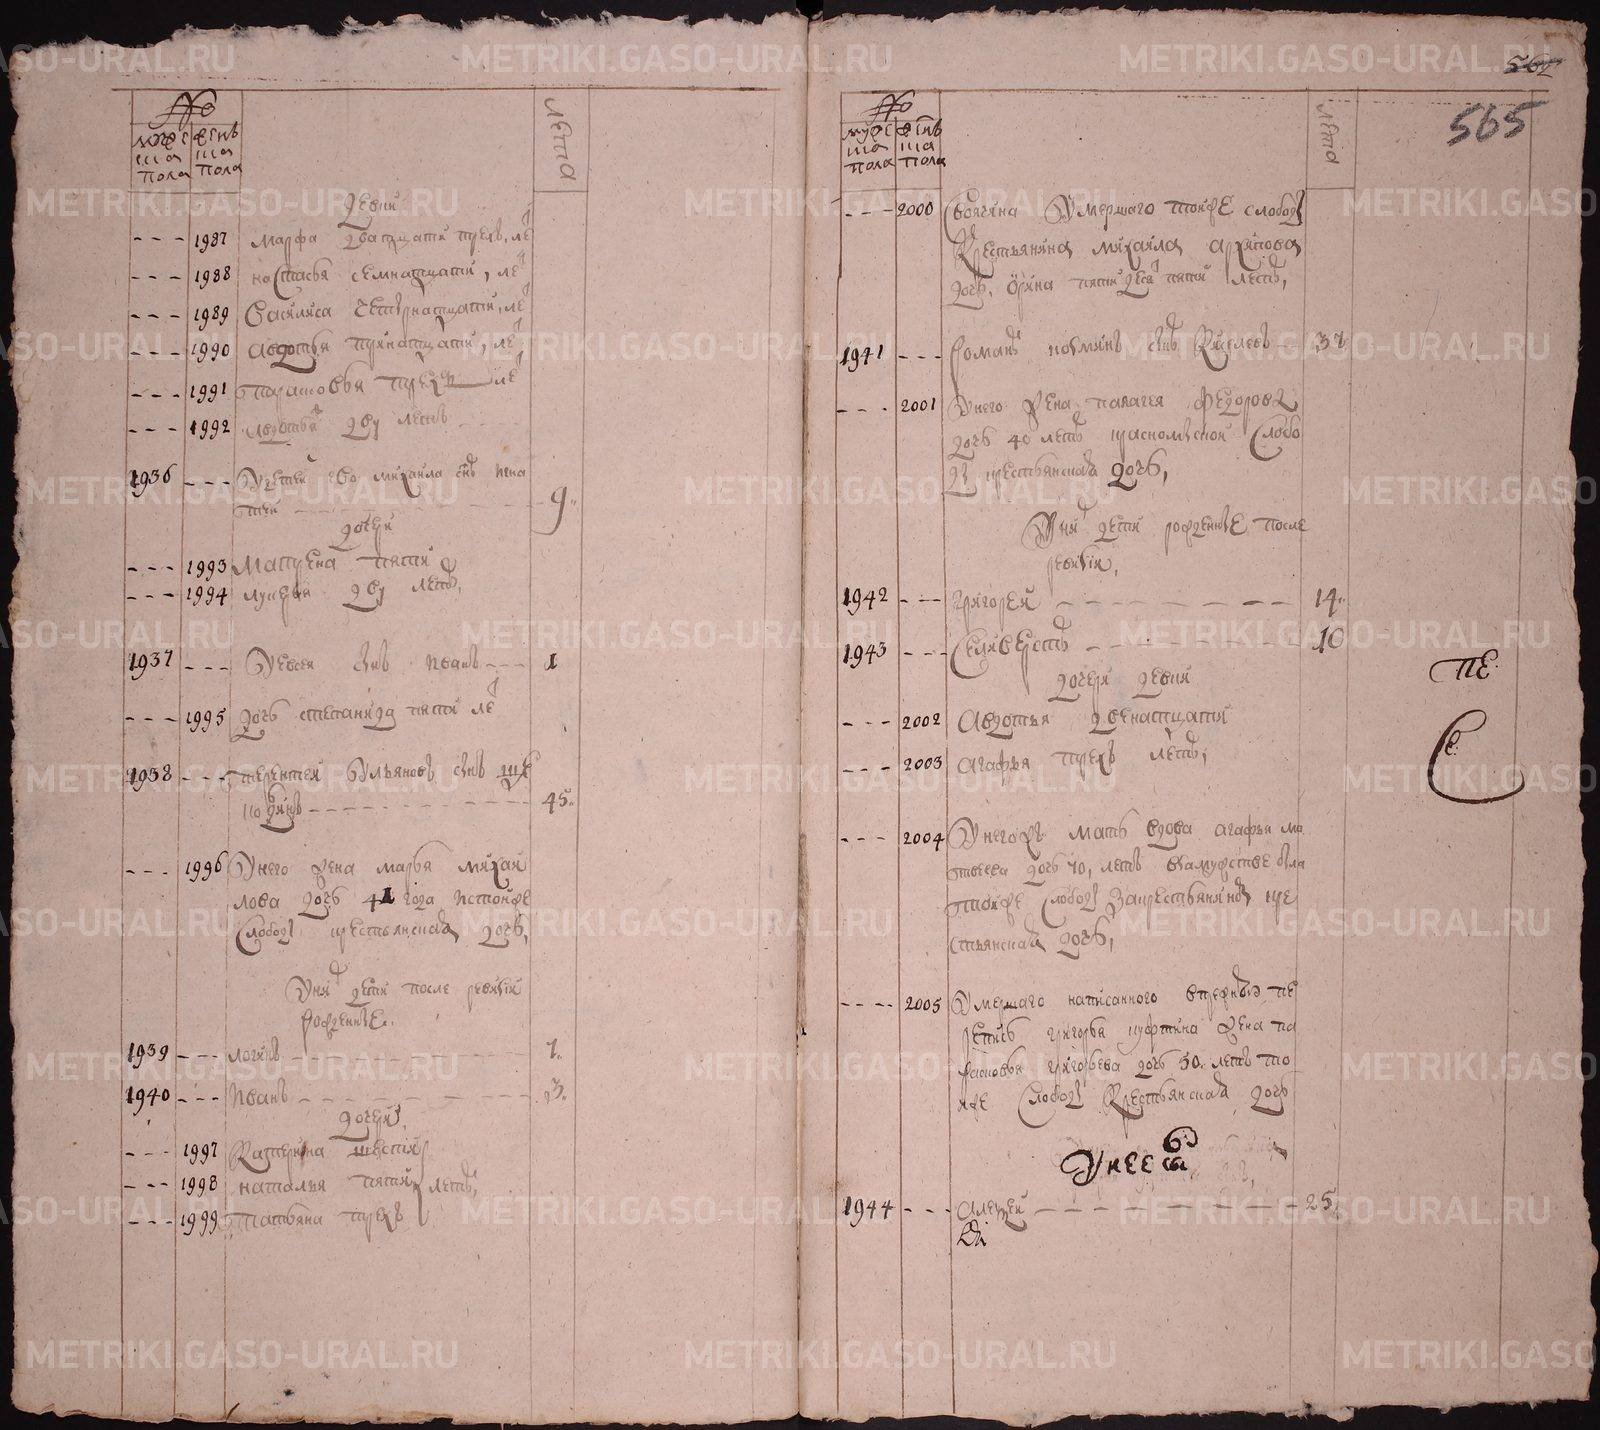 №
мужеска пола
женска пола
лета
девки
--- 1987 Марфа дватцати трехъ летъ
--- 1988 Настасья семнатцати летъ
--- 1989 Василиса четырнатцати летъ
--- 1990 Авдотья тринатцати летъ
--- 1991 Парасковья трехъ летъ
--- 1992 двухъ летъ
1936 --- михаила снъ
9
дочери
--- 1993 Матрена пяти
--- 1994 лукерья дву летъ,
1937 --- снъ Иванъ --- 1
--- 1995 дочь степанида пяти летъ
1938 --- терентей Ульяновъ снъ
45
--- 1996 У него жена марья михаи
лова дочь 41 года тойже
слободы крестьянская дочь,
У них дети после ревизии
рожденные
1939 --- логинъ 7
1940 --- Иванъ 3
дочери
--- 1997 Катерина шести
--- 1998 наталья пяти летъ,
--- 1999 татьяна трехъ
562
565
№
мужеска пола
женска пола
лета
--- 2000 Умершаго тойже слободы
крестьянина михаила архипова
дочь Орина пятидесят пяти летъ,
1941 --- романъ снъ Киселевъ 37
--- 2001 У него жена палагея федорова
дочь 40 летъ красномыской слобо
ды крестьянская дочь,
У них дети рожденные после
ревизии,
1942 --- григорей 14
1943 --- Селиверстъ 10
дочери девки
--- 2002 Авдотья двенатцати
--- 2003 агафья трехъ летъ,
пе
ре
--- 2004 У негожъ мать вдова агафья ма
твеева дочь 70, летъ взамужстве была
тойже слободы закрестьяниномъ кре
стьянская дочь,
---- 2005 Умершаго написанного впрежнюю пе
репись григорья жена па
расковья григорьева дочь 50 летъ то
йже слободы крестьянская дочь
У нее снъ
1944 --- алексей 25